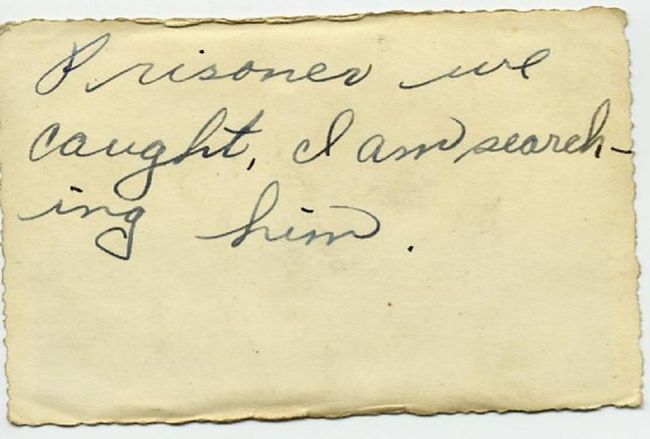 Prisoner we
caught, I am search-
ing him.